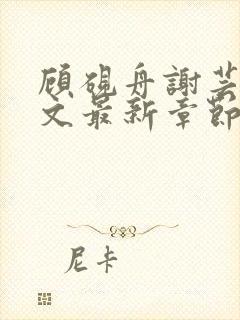 顾砚舟謝芸
文最新章節
尼卡